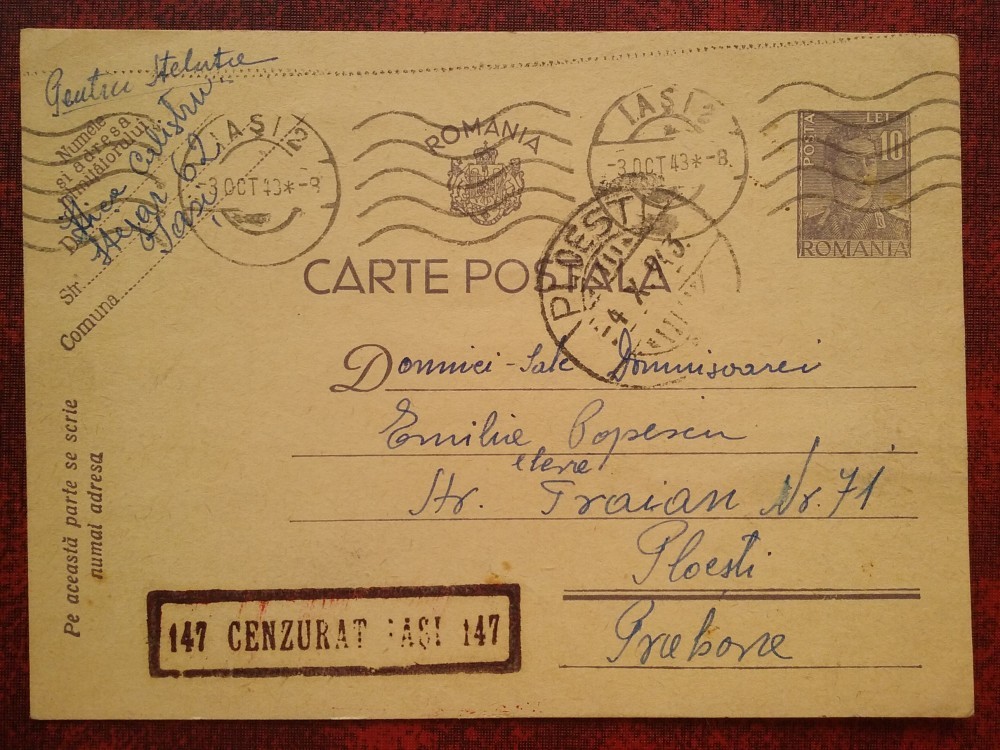 Pentru Steluta
Numele
și adresa
trimițătorului
D
Calistru
Str. Stejar 62
Comuna Iasi
IAȘI 2
-3 OCT 43*-8
ROMÂNIA
IAȘI 2
-3 OCT 43*-8
POSTA LEI 10
ROMANIA
CARTE POSTALA
PLOESTI
4 X 943
Domniei-Sale Domnisoarei
Emilia Popescu
eleva
Str. Traian Nr. 71
Ploesti
Prahova
Pe această parte se scrie
numai adresa
147 CENZURAT IAȘI 147